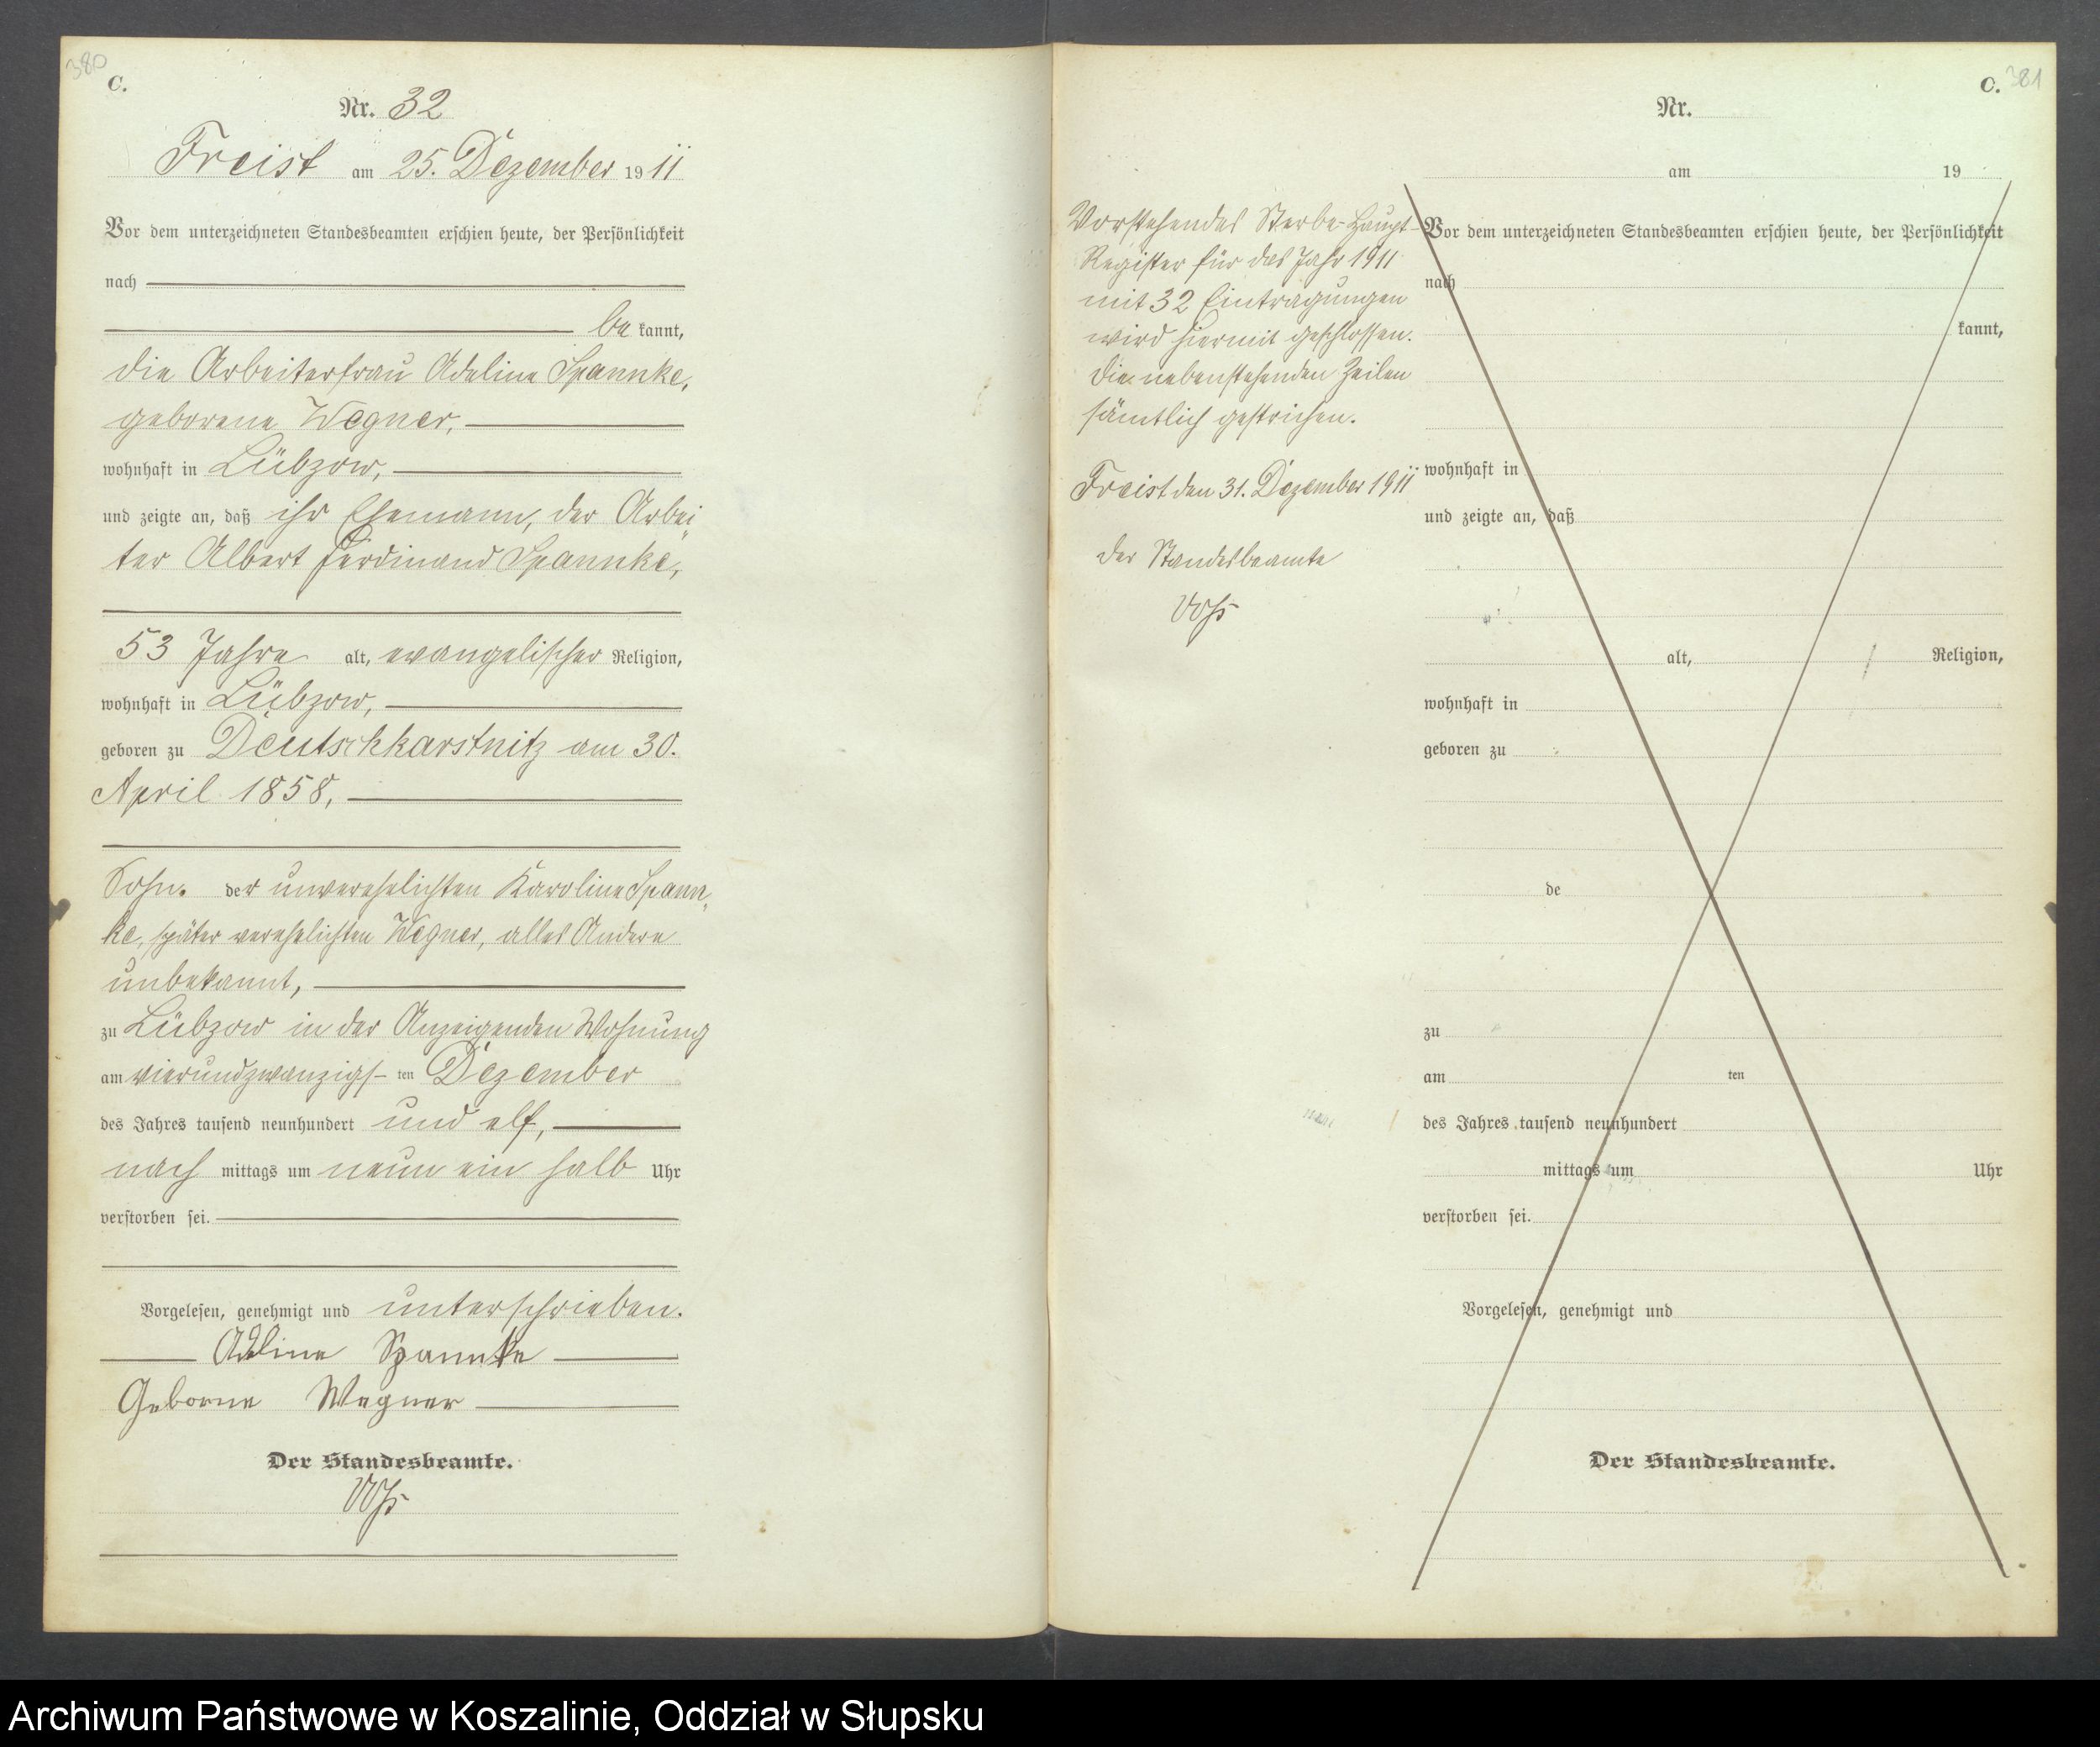 380
C.
Nr. 32
Freist am 25. Dezember 1911
Vor dem unterzeichneten Standesbeamten erschien heute, der Persönlichkeit
nach
be kannt,
die Arbeiterfrau Adeline Spannke,
geborene Wegner,
wohnhaft in Lübzow,
und zeigte an, daß ihr Ehemann, der Arbei„
ter Albert Ferdinand Spannke,
53 Jahre alt, evangelischer Religion,
wohnhaft in Lübzow,
geboren zu Deutschkarstnitz am 30.
April 1858,
Sohn. der unverehelichten Karoline Spann„
ke, später verehelichten Wegner, alles Andere
unbekannt,
zu Lübzow in der Anzeigenden Wohnung
am vierundzwanzigs- ten Dezember
des Jahres tausend neunhundert und elf,
nach mittags um neun ein halb Uhr
verstorben sei.
Vorgelesen, genehmigt und unterschrieben.
Adline Spannke
Geborne Wegner
Der Standesbeamte.
Voß
381
C.
Nr.
am 19
Vorstehendes Sterbe-Haupt-
Register für das Jahr 1911
mit 32 Eintragungen
wird hiermit geschlossen.
Die nebenstehenden Zeilen
sämtlich gestrichen.
Freist den 31. Dezember 1911
Der Standesbeamte
Voß
Vor dem unterzeichneten Standesbeamten erschien heute, der Persönlichkeit
nach
kannt,
wohnhaft in
und zeigte an, daß
alt, Religion,
wohnhaft in
geboren zu
de
zu
am ten
des Jahres tausend neunhundert
mittags um Uhr
verstorben sei.
Vorgelesen, genehmigt und
Der Standesbeamte.
Archiwum Państwowe w Koszalinie, Oddział w Słupsku